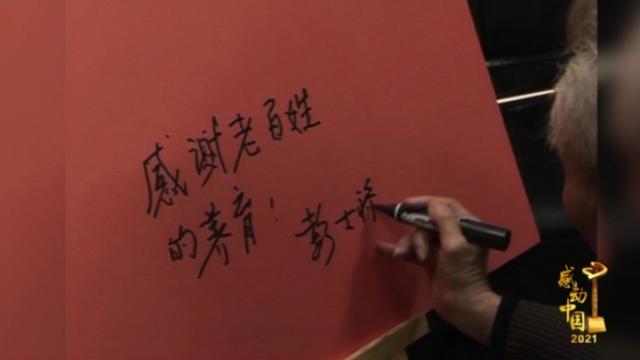 感谢老百姓
的养育！
彭士禄
感动中国
2021